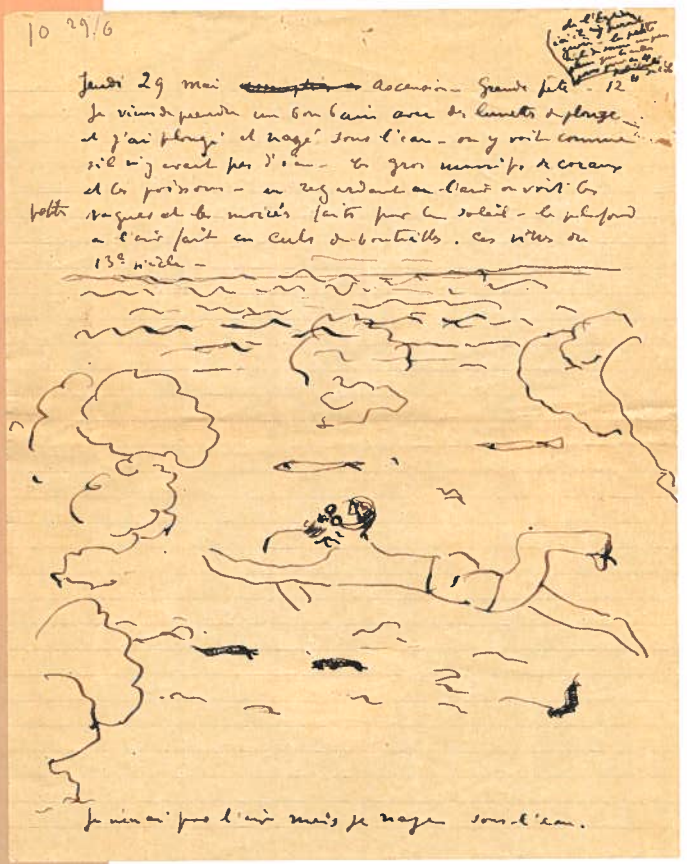 10 29/6
Jeudi 29 mai ascension - Grande fête - 12
Je viens de prendre un bon bain avec des lunettes de plonge
et j'ai plongé et nagé sous l'eau - on y voit comme
s'il n'y avait pas d'eau - les gros massifs de coraux
et les poissons - en regardant en l'air on voit les
petits vagues et les moirés faits par le soleil - le plafond
a l'air fait en culs de bouteilles. ces vitres du
13e siècle -
Je n'en ai pas l'air mais je nage sous l'eau.